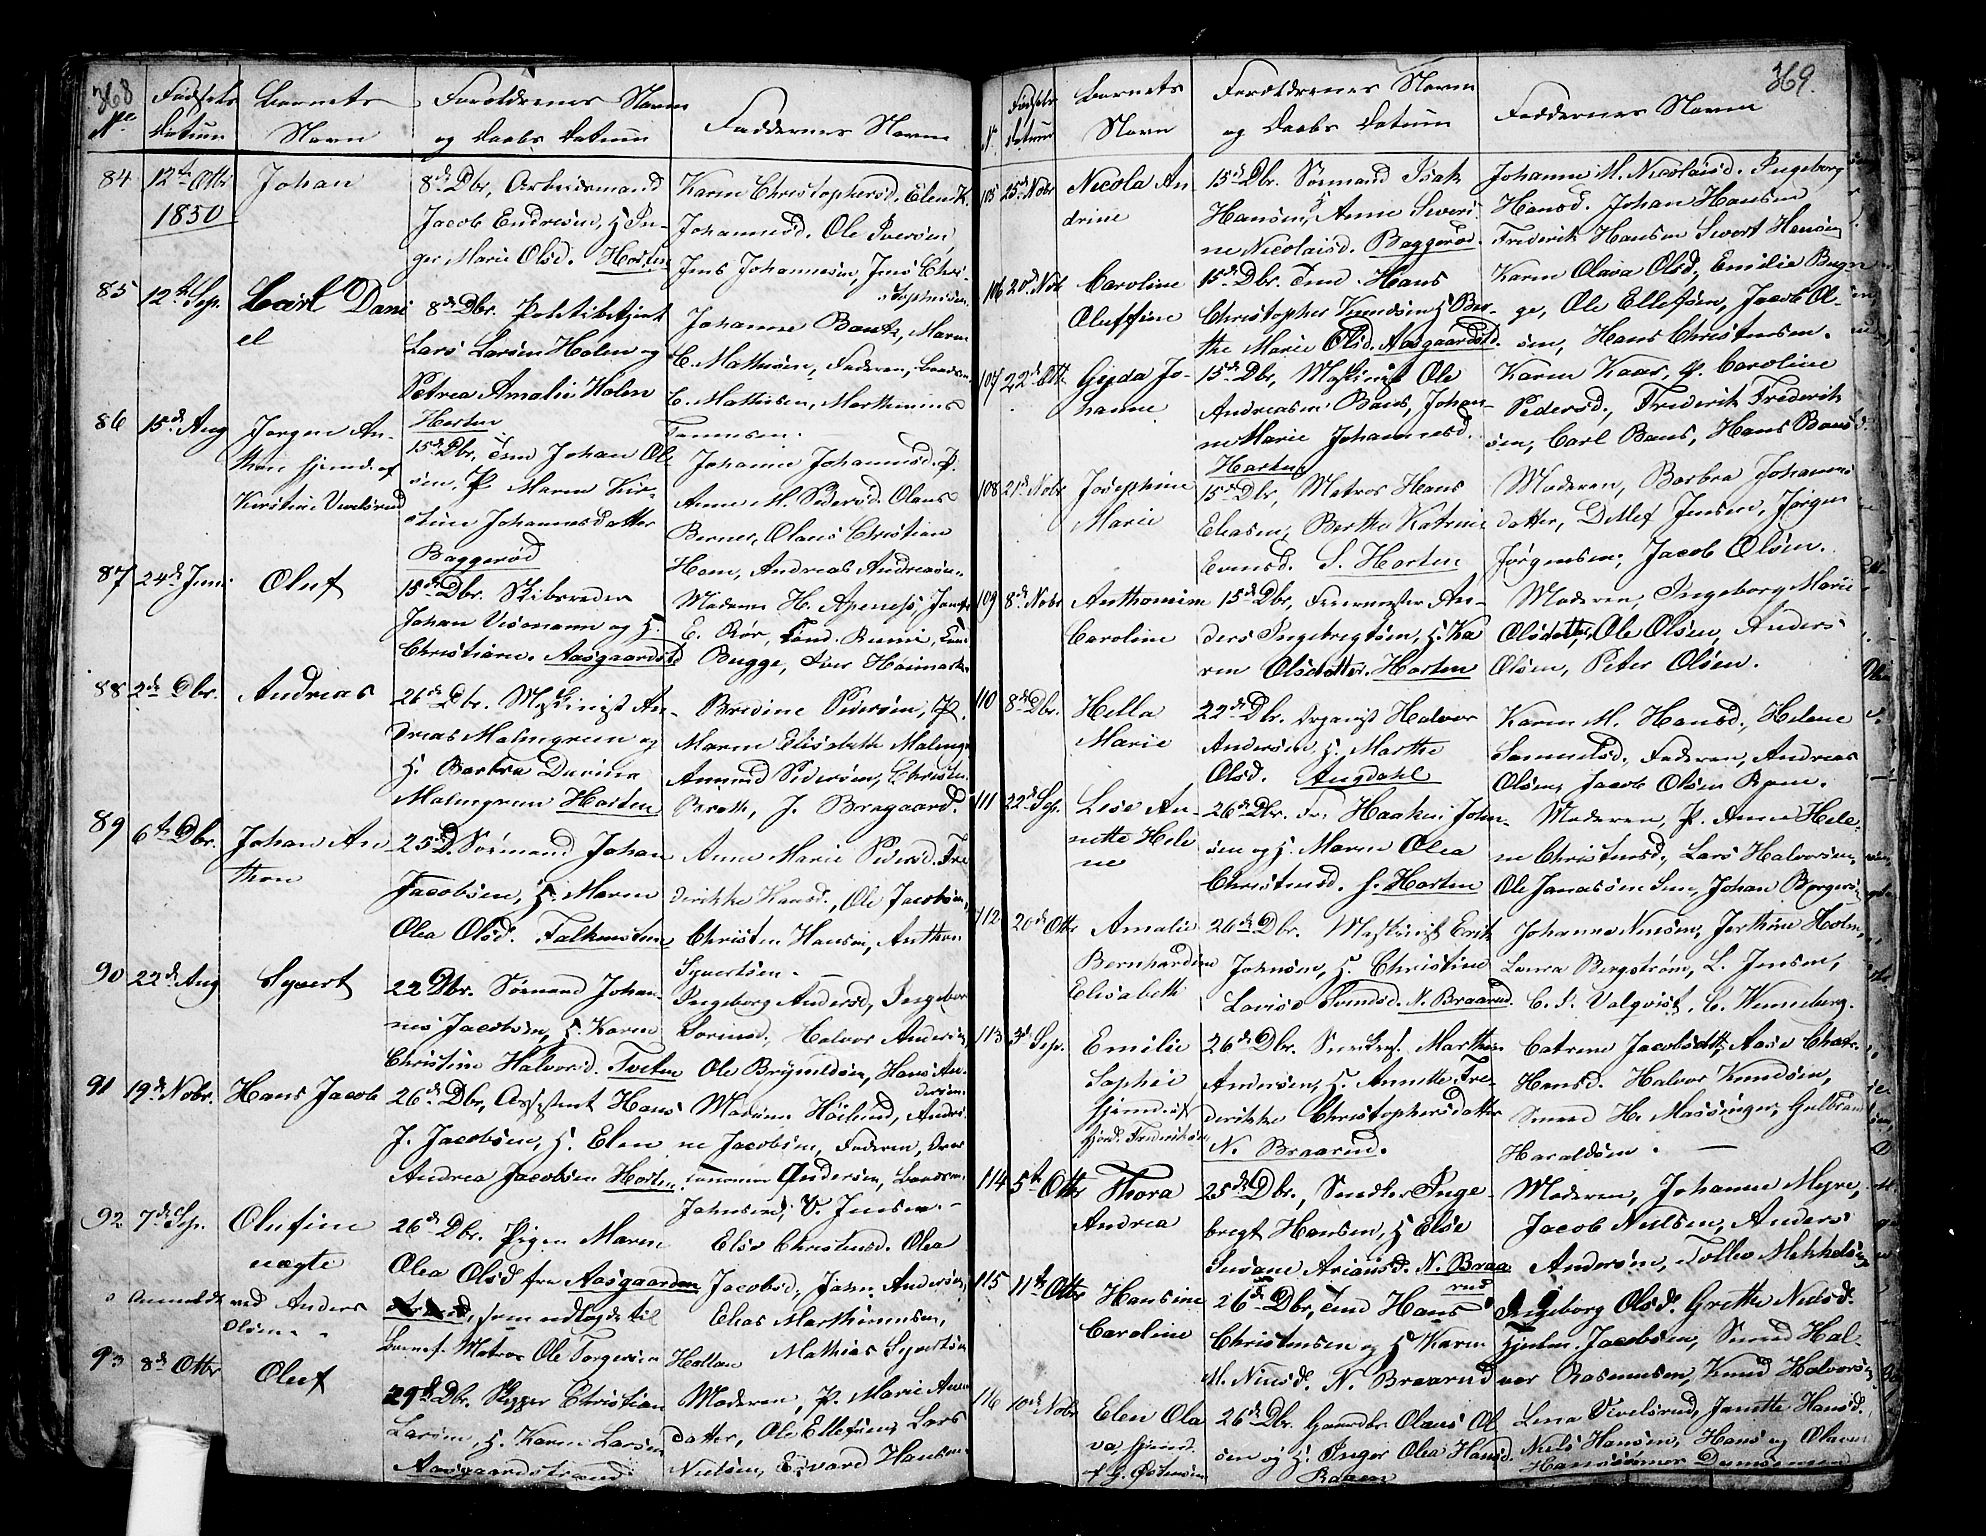 368
No
Fødsels
Datum
Barnets
Navn
Forældrenes Navn
og Daabs Datum
Faddernes Navne
84
12te Otbr
1850
Johan
8de Dbr, Arbeidsmand
Jacob Endresen, H. In-
ger Marie Olsd. Horten
Karen Christophersd. Elen K.
Johannesd. Ole Iversen,
Jens Johannesen, Jens Chri-
stophersen
85
12te Sep.
Carl Dani
el
8de Dbr. Politibetjent
Lars Larsen Holen og
Petrea Amalie Holen
Horten
Johanne Bantz, Maren
C. Mathisen, Faderen,
C. Mathisen, Marthinius
Tonnesen.
86
15de Aug
Jørgen An-
thon hjemd. af
Kirstine
15de Dbr, Tmd Johan Ol
sen, P. Maren Kir-
stine Johannesdatter
Baggerød
Johanne Johannesd. P.
Anne M. Pedersd. Olaus
Berner, Olaus Christian
Ham, Andreas Andreasen.
87
24de Juni
Oluf
15de Dbr. Skibsreder
Johan Vismann og H.
Christiane. Aasgaardstd
Madame H. Apenes, Jomfr
E. Rør,
Bugge, Iver
88
2de Dbr.
Andreas
26de Dbr. Maskinist An-
dreas Malmgreen og
H. Barbra Davina
Malmgreen Horten
Bredine Pedersen, P.
Maren Elisabeth Malmgr
Amund Pedersen, Christen
Brath, J. Bragaard.
89
6te Dbr.
Johan An
thon
25de D. Sømand Johan
Jacobsen, H. Maren
Olea Olsd. Falkensteen
Anne Marie Pedersd. Fre
derikke Hansd., Ole Jacobsen,
Christen Hansen, Anthon
Syvertsen. –
90
22de Aug
Syvert
22 Dbr. Sømand Johan-
nes Jacobsen, H. Karen
Christine Halvorsd. Tveten
Ingeborg Andersd, Ingebor
Halvor Andersen,
Ole Brynildsen, Hans An-
dersen
91
19de Nobr.
Hans Jacob
26de Dbr, Assistent Hans
J. Jacobsen, H. Elen
Andrea Jacobsen Horten.
Madame Høilund, Andri
ne Jacobsen, Faderen,
Andersen,
Johnsen, V. Jensen. –
92
7de Sep.
Olufine
uægte
Anmeldt ved Anders
Olsen
26de Dbr. Pigen Maren
Olea Olsd fra Aasgaarden
, som udlagde til
Barnef. Matros Ole Torgersen
Else Christensd. Olea
Jacobsd, Johan Andersen,
Elias Marthinussen,
Mathias Syvertsen
Hollan
93
8de Otbr
Oluf
29de Dbr. Skipper Christian
Larsen, H. Karen Larsen
Aasgaardstrand
Moderen, P. Marie Aan
datter, Ole Ellefsen, Lars
Nielsen, Edvard Hansen
369.
N.
Fødsels
Datum
Barnets
Navn
Forældrenes Navn
og Daabs Datum
Faddernes Navn
105
25de Nobr
Nicola An
drine
15de Dbr. Sømand Isak
Hansen, H. Anne Severi
ne Nicolaisd. Baggerød.
Johanne M. Nicolaisd. Ingeborg
Hansd. Johan Hansen
Frederik Hansen Sivert Hansen
106
20de Nob
Caroline
Oluffine
15de Dbr. Tmd. Hans
Christopher Knudsen, H. Ber-
the Marie Olsd. Aasgaardstd.
Karen Olava Olsd, Emilie
ge, Ole Ellefsen, Jacob Ol-
sen, Hans Christensen.
107
22de Otb
Gyda Jo-
hanne
15de Dbr, Maskinist Ole
Andreasen Baus, Johan-
ne Marie Johannesd.
Horten
Karen Kaas, P. Caroline
Pedersd., Frederik Frederik
sen, Carl Baus, Hans Baus
108
21de Nobr
Josephine
Marie
15de Dbr, Matros Hans
Eliasen, Berthe Katrine
Evensd. S. Horten
Moderen, Barbra Johannes
datter, Detlef Jensen, Jørgen
Jørgensen, Jacob Olsen.
109
8de Nobr
Anthomine
Caroline
15de Dbr, An-
ders Ingebregtsen, H. Ka
ren Olsdatter. Horten
Moderen, Ingeborg Marie
Olsdatter, Ole Olsen, Anders
Olsen, Peter Olsen.
110
8de Dbr.
Hella
Marie
22de Dbr. Organist Halvor
Andersen, H. Marthe
Olsd. Augdahl
Karen M. Hansd., Helene
Samuelsd. Faderen, Andreas
Olsen, Jacob Olsen
111
22de Sep.
Lise An-
nette Hele
ne
26de Dbr. Fr. Haaken John-
sen og H. Maren Olea
Christensd. S. Horten
Moderen, P. Anne Hele-
ne Christensd., Lars Halvorsen,
Ole Janasen Johan Borgers
112
20de Otbr
Amalie
Bernhardine
Elisabeth
26de Dbr. Maskinist Erik
Johnsen, H. Christine
Lovise N. Braarud.
Johanna Nielsen, Holm,
Laura Bergstrøm, L. Jensen,
C. J. Valqvist, C. Wenneberg.
113
3de Sep.
Emilie
Sophie
hjemdøbt
26de Dbr. Marthin
Andersen, H. Annette Fre-
derikke Christophersdatter
N. Braarud.
Catrine Jacobsdtt, Aase Chatr.
Hansd. Halvor Knudsen,
Smed H. Massinger, Gulbrand
Haraldsen. –
114
5te Otbr
Thora
Andrea
25de Dbr, Snedker Inge-
bregt Hansen, H Else
Susane Ariansd. N. Braa
rud
Moderen, Johanne Myre,
Jacob Nielsen, Anders
Andersen, Tollev Mikkelsen
115
11te Otbr
Hansine
Caroline
26de Dbr, Tmd Hans
Christensen og H Karen
M. Nielsd. N. Braarud
Ingeborg Olsd. Grethe Nielsd.
Jacobsen, Smed Hal-
vor Rasmussen, Knud Halvorsen
116
10de Nobr
Elen Ola
va hjemd.
26de Dbr. Gaardbr. Olaus Ol
sen og H. Inger Olea Hansd.
Raaen
Lena Sivelsrud, Janette Hansd.
Niels Hansen, Hans og Olaves